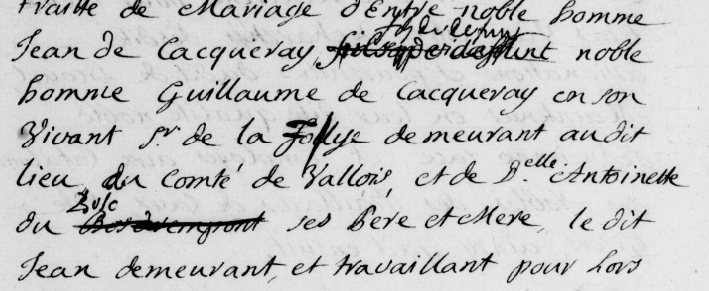 traitté de Mariage d'Entre noble homme
Jean de Cacqueray fils de deffunt noble
homme Guillaume de Cacqueray en son
Vivant Sr. de la Follye demeurant au dit
lieu du Comté de Vallois et de D.elle Antoinette
du ses Pere et Mere, le dit
Jean demeurant, et travaillant pour lors